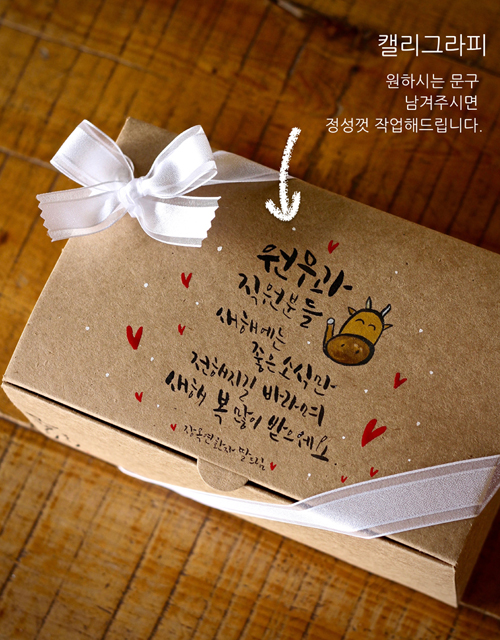 캘리그라피
원하시는 문구
남겨주시면
정성껏 작업해드립니다.
원무과
직원분들
새해에는
좋은소식만
전해지길 바라며
새해 복 많이 받으세요.